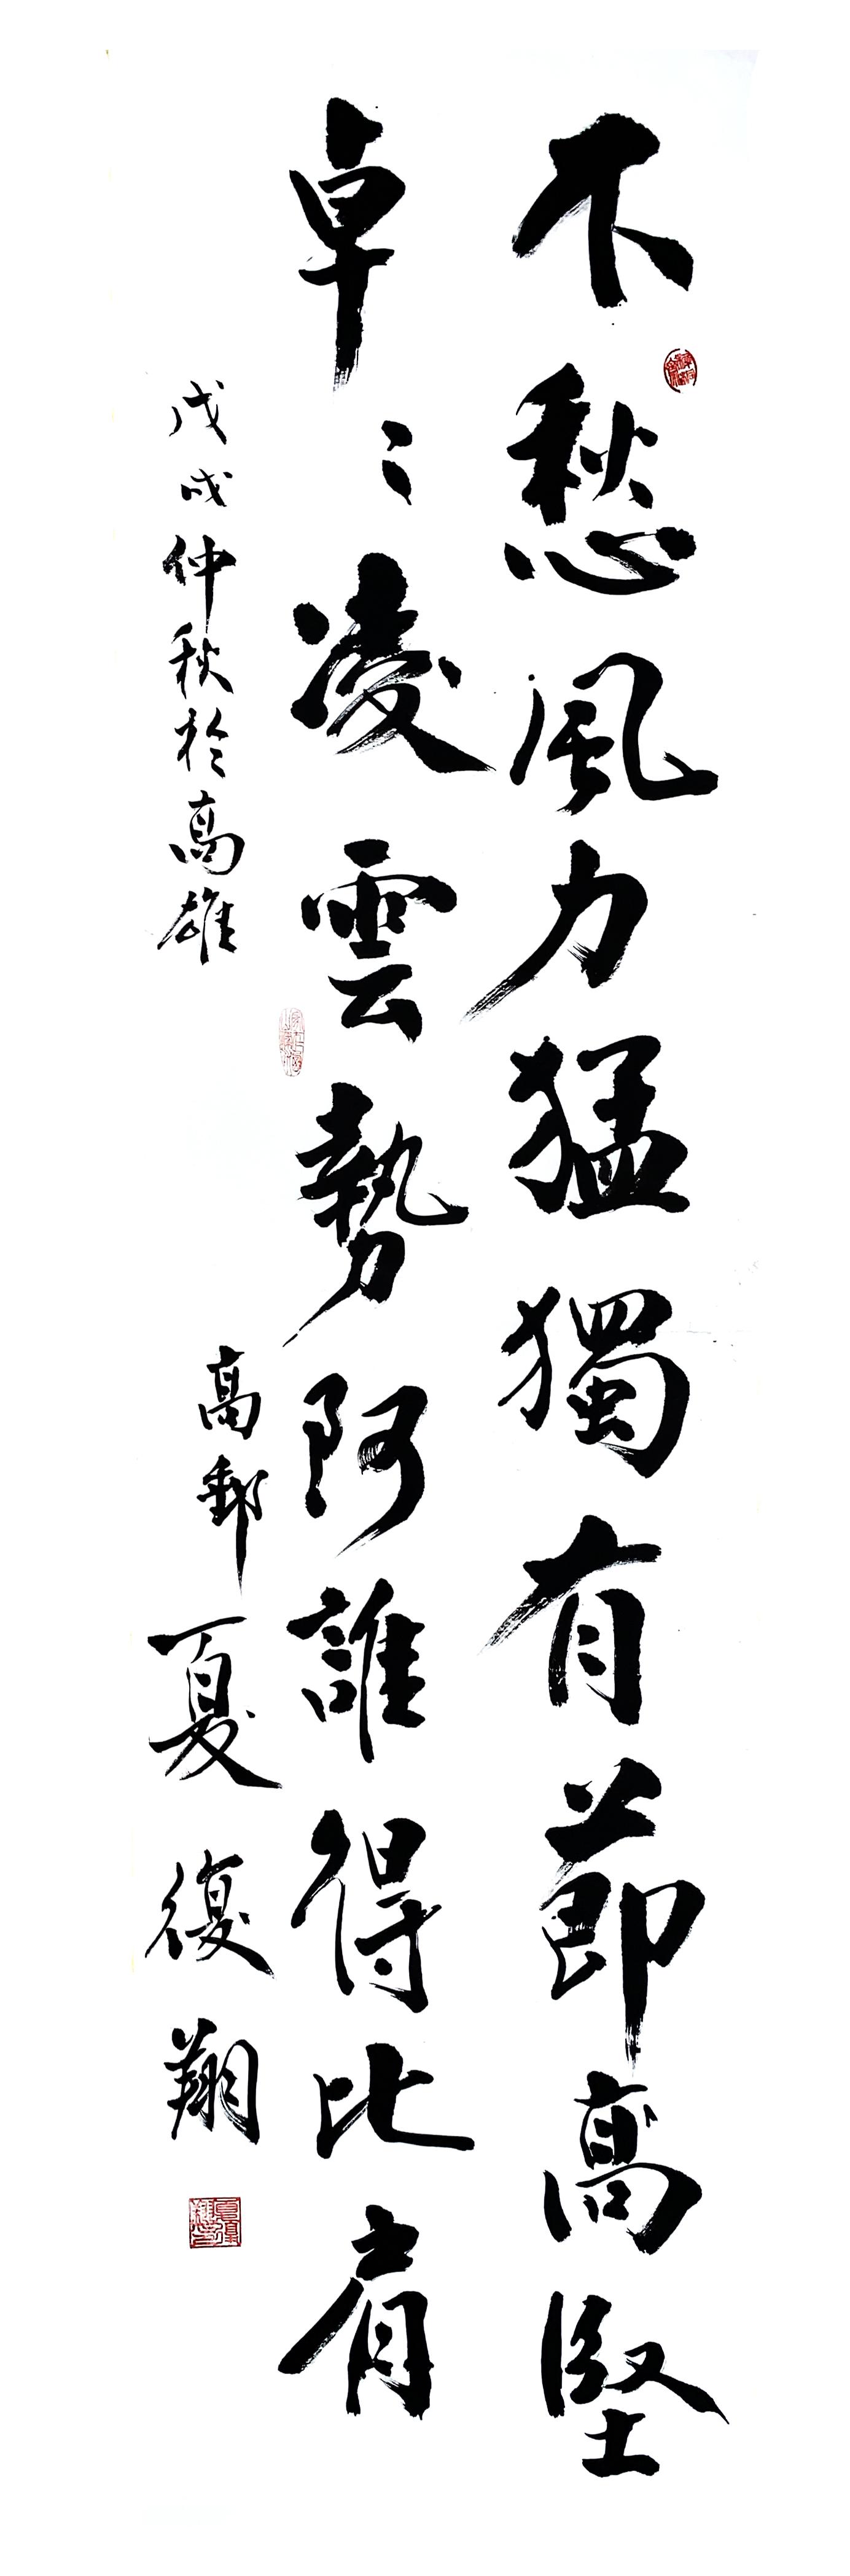 不愁風力猛獨有節高堅
卓〻凌雲勢阿誰得比肩
戊戌仲秋於高雄
高郵夏復翔